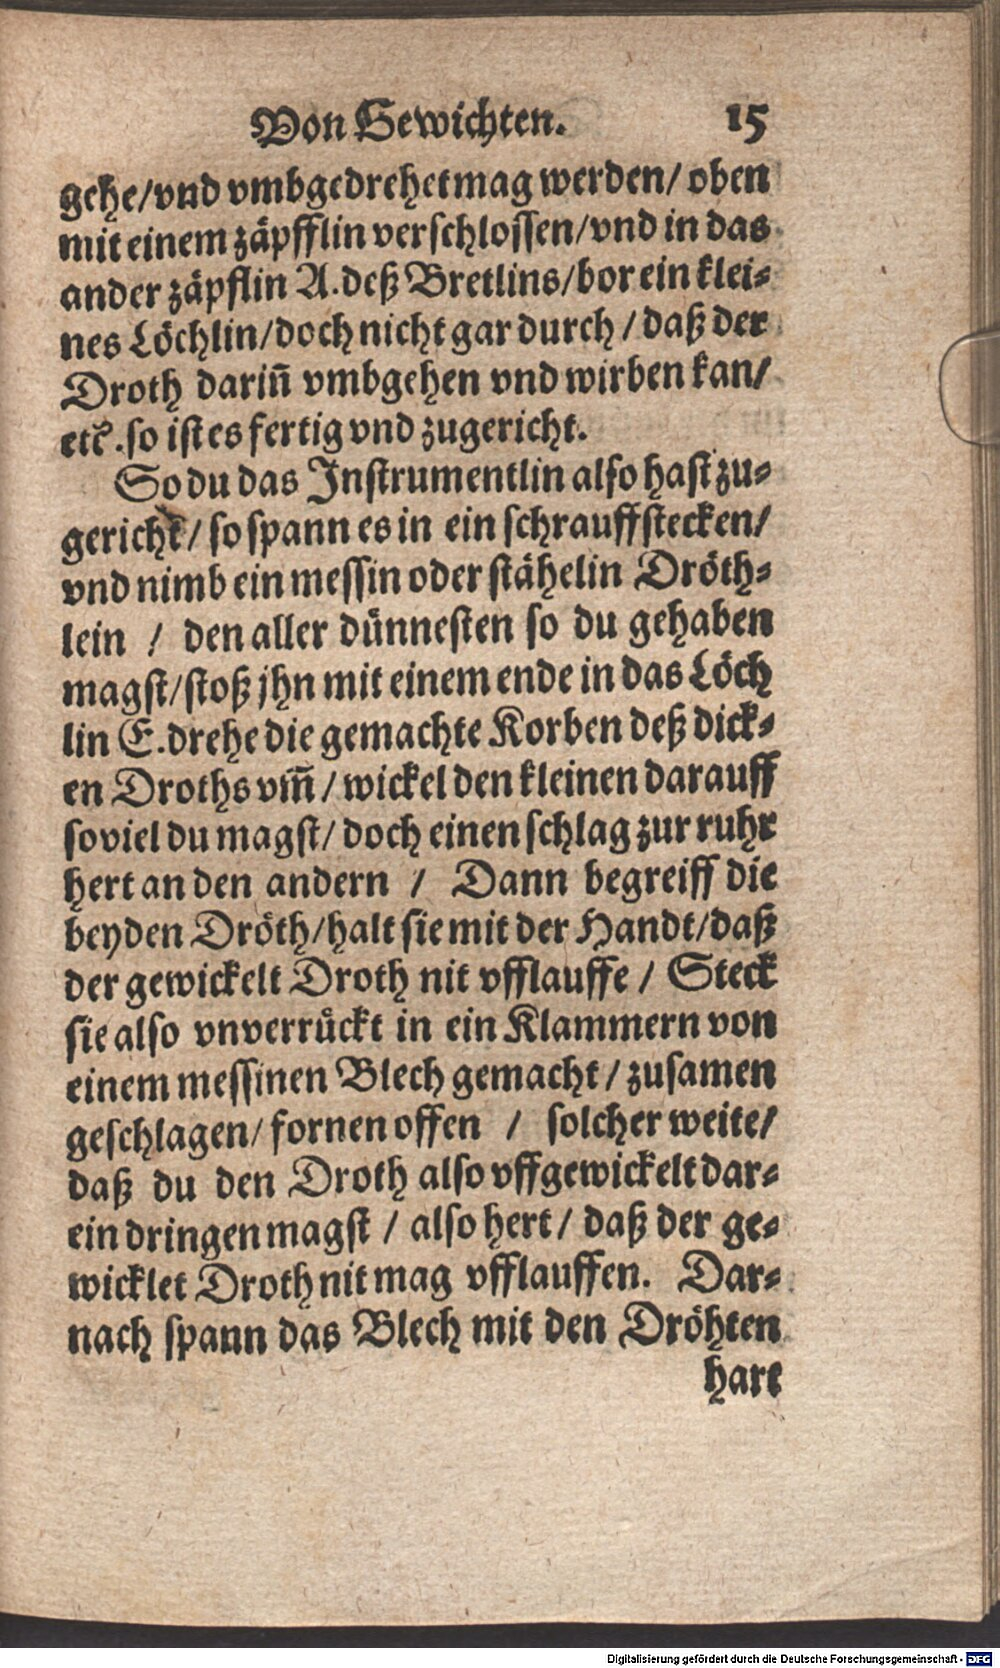 Von Gewichten. 15
gehe/vnd vmbgedrehet mag werden/ oben
mit einem zäpfflin verschlossen/vnd in das
ander zäpflin A. deß Bretlins/bor ein klei-
nes Löchlin/doch nicht gar durch / daß der
Droth dariñ vmbgehen vnd wirben kan/
etc. so ist es fertig vnd zugericht.
So du das Instrumentlin also hast zu-
gericht / so spann es in ein schrauffstecken/
vnd nimb ein messin oder stähelin Dröth-
lein / den aller dünnesten so du gehaben
magst/stoß jhn mit einem ende in das Löch
lin E. drehe die gemachte Korben deß dick-
en Droths vm̃ / wickel den kleinen darauff
soviel du magst/ doch einen schlag zur ruhr
hert an den andern / Dann begreiff die
beyden Dröth/halt sie mit der Handt/daß
der gewickelt Droth nit vfflauffe / Steck
sie also vnverrückt in ein Klammern von
einem messinen Blech gemacht / zusamen
geschlagen/ fornen offen / solcher weite/
daß du den Droth also vffgewickelt dar-
ein dringen magst / also hert / daß der ge-
wicklet Droth nit mag vfflauffen. Dar-
nach spann das Blech mit den Dröhten
hart
Digitalisierung gefördert durch die Deutsche Forschungsgemeinschaft - DFG